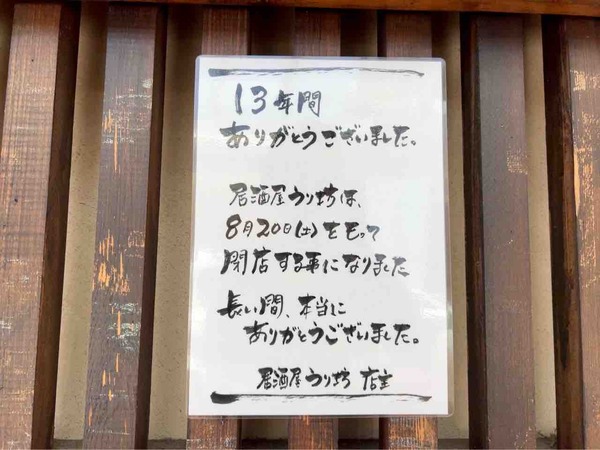 13年間
ありがとうございました。
居酒屋うり坊は、
8月20日(土)をもって
閉店する事になりました
長い間、本当に
ありがとうございました。
居酒屋うり坊 店主